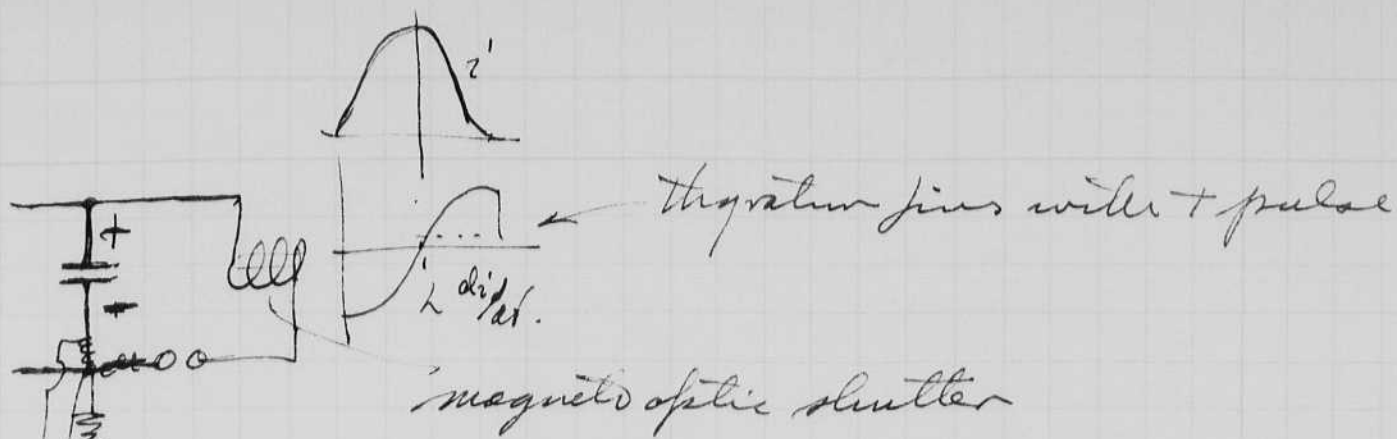 i
+
Thyratron fires with + pulse
-
L di/dt.
magneto optic shutter